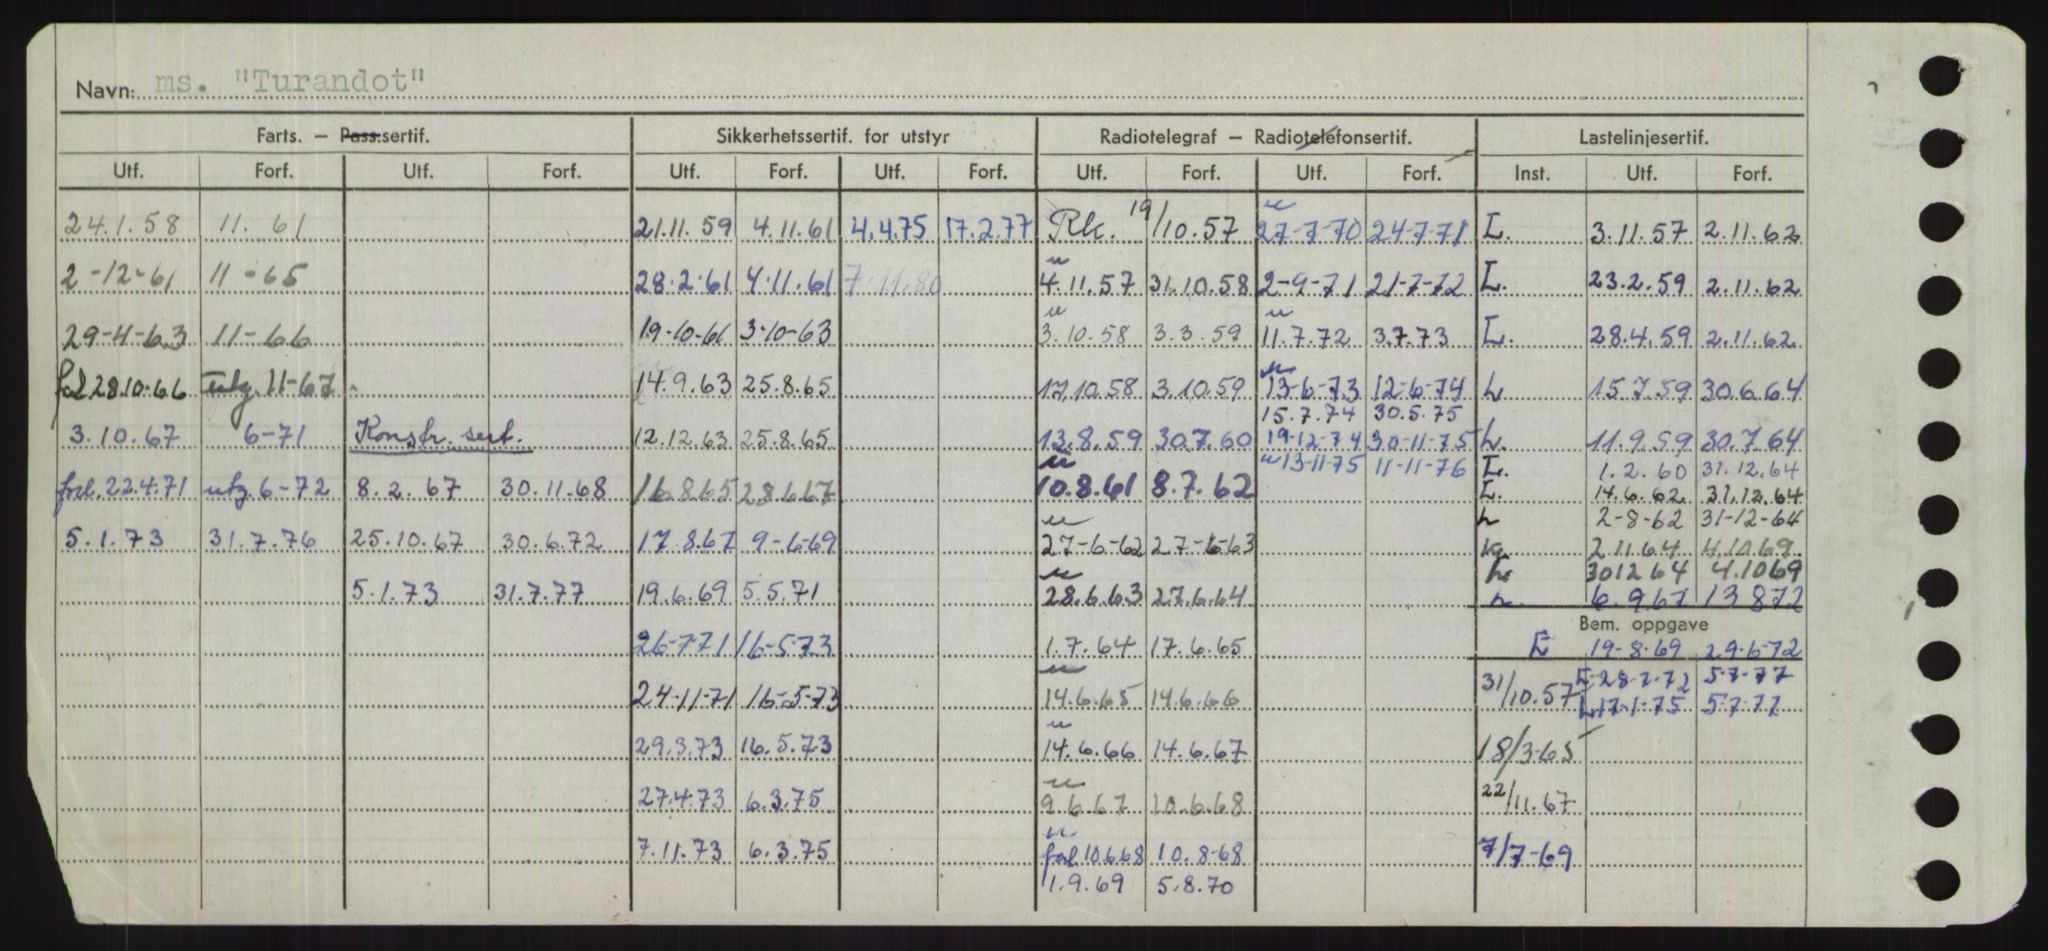 Navn: ms. "Turandot"
Farts. — Pass.sertif. Sikkerhetssertif. for utstyr Radiotelegraf — Radiotelefonsertif. Lastelinjesertif.
Utf. Forf. Utf. Forf. Utf. Forf. Utf. Forf. Utf. Forf. Utf. Forf. Inst. Utf. Forf.
24.1.58 11. 61 21.11.59 4.11.61 4.4.75 17.2.77 Rk. 19/10.57 27-7-70 24-7-71 L. 3.11.57 2.11.62
2-12-61 11-65 28.2.61 4.11.61 7.11.80 4.11.57 31.10.58 2-9-71 21-7-72 L. 23.2.59 2.11.62
29-4-63 11-66 19-10-61 3-10-63 3.10.58 3.3.59 11.7.72 3.7.73 L. 28.4.59 2.11.62
forl 28.10.66 utg. 11-67 14.9.63 25.8.65 17.10.58 3.10.59 13-6-73 12-6-74 L 15.7.59 30.6.64
15.7.74 30.5.75
3.10.67 6-71 Konstr. sert. 12.12.63 25.8.65 13.8.59 30.7.60 19-12-74 30-11-75 L. 11.9.59 30.7.64
13-11-75 11-11-76 L. 1.2.60 31.12.64
forl. 22.4.71 utg. 6-72 8.2.67 30.11.68 16.8.65 28.6.67 10.8.61 8.7.62 L. 14.6.62 31.12.64
L 2-8-62 31-12-64
5.1.73 31.7.76 25.10.67 30.6.72 17.8.67 9-6-69 27-6-62 27-6-63 2.11.64 4.10.69
L 30 12 64 4.10 69
5.1.73 31.7.77 19.6.69 5.5.71 28.6.63 27.6.64 L. 6.9.67 13 8 72
Bem. oppgave
26-7-71 16-5-73 1.7.64 17.6.65 E 19-8-69 29-6-72
24-11-71 16-5-73 14.6.65 14.6.66 31/10.57 E 28-7-72 5-7-77
L 17-1-75 5-7-77
29.3.73 16.5.73 14.6.66 14.6.67 18/3-65
27.4.73 6.3.75 9 6.67 10.6.68 22/11.67
7.11.73 6.3.75 forl 10.6.68 10.8-68 7/7-69
1.9.69 5.8.70